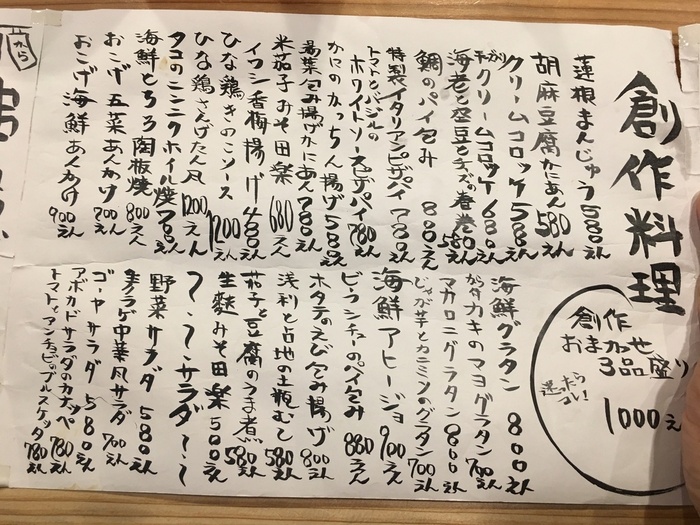 創作料理
蓮根まんじゅう 580えん
胡麻豆腐かにあん 580えん
クリームコロッケ 580えん
クリームコロッケ 680えん
海老と空豆とチーズの春巻 580えん
鯛のパイ包み 800えん
特製イタリアンピザパイ 780えん
トマトとバジルのホワイトソースピザパイ 780えん
かにのかっちん揚げ 580えん
湯葉包み揚げかにあん 780えん
米茄子みそ田楽 680えん
イワシ香梅揚げ 480えん
ひな鶏きのこソース 1200えん
ひな鶏さんげたん風 1200えん
タコのニンニクホイル焼 780えん
海鮮とろろ陶板焼 800えん
おこげ五菜あんかけ 700えん
おこげ海鮮あんかけ 900えん
創作
おまかせ
3品盛り
迷ったら
コレ!
1000え
海鮮グラタン 800えん
カキのマヨグラタン 700えん
マカロニグラタン 800えん
じゃが芋とカニミソのグラタン 700えん
海鮮アヒージョ 900えん
ビーフシチューのパイ包み 880えん
ホタテのえび包み揚げ 800えん
浅利と占地の土瓶むし 580えん
茄子と豆腐のうま煮 580えん
生麩みそ田楽 500えん
〜〜サラダ〜〜
野菜サラダ 580えん
生クラゲ中華風サラダ 700えん
ゴーヤサラダ 580えん
アボカドサラダのカナッペ 780えん
トマトとアンチョビのブルスケッタ 780えん
から